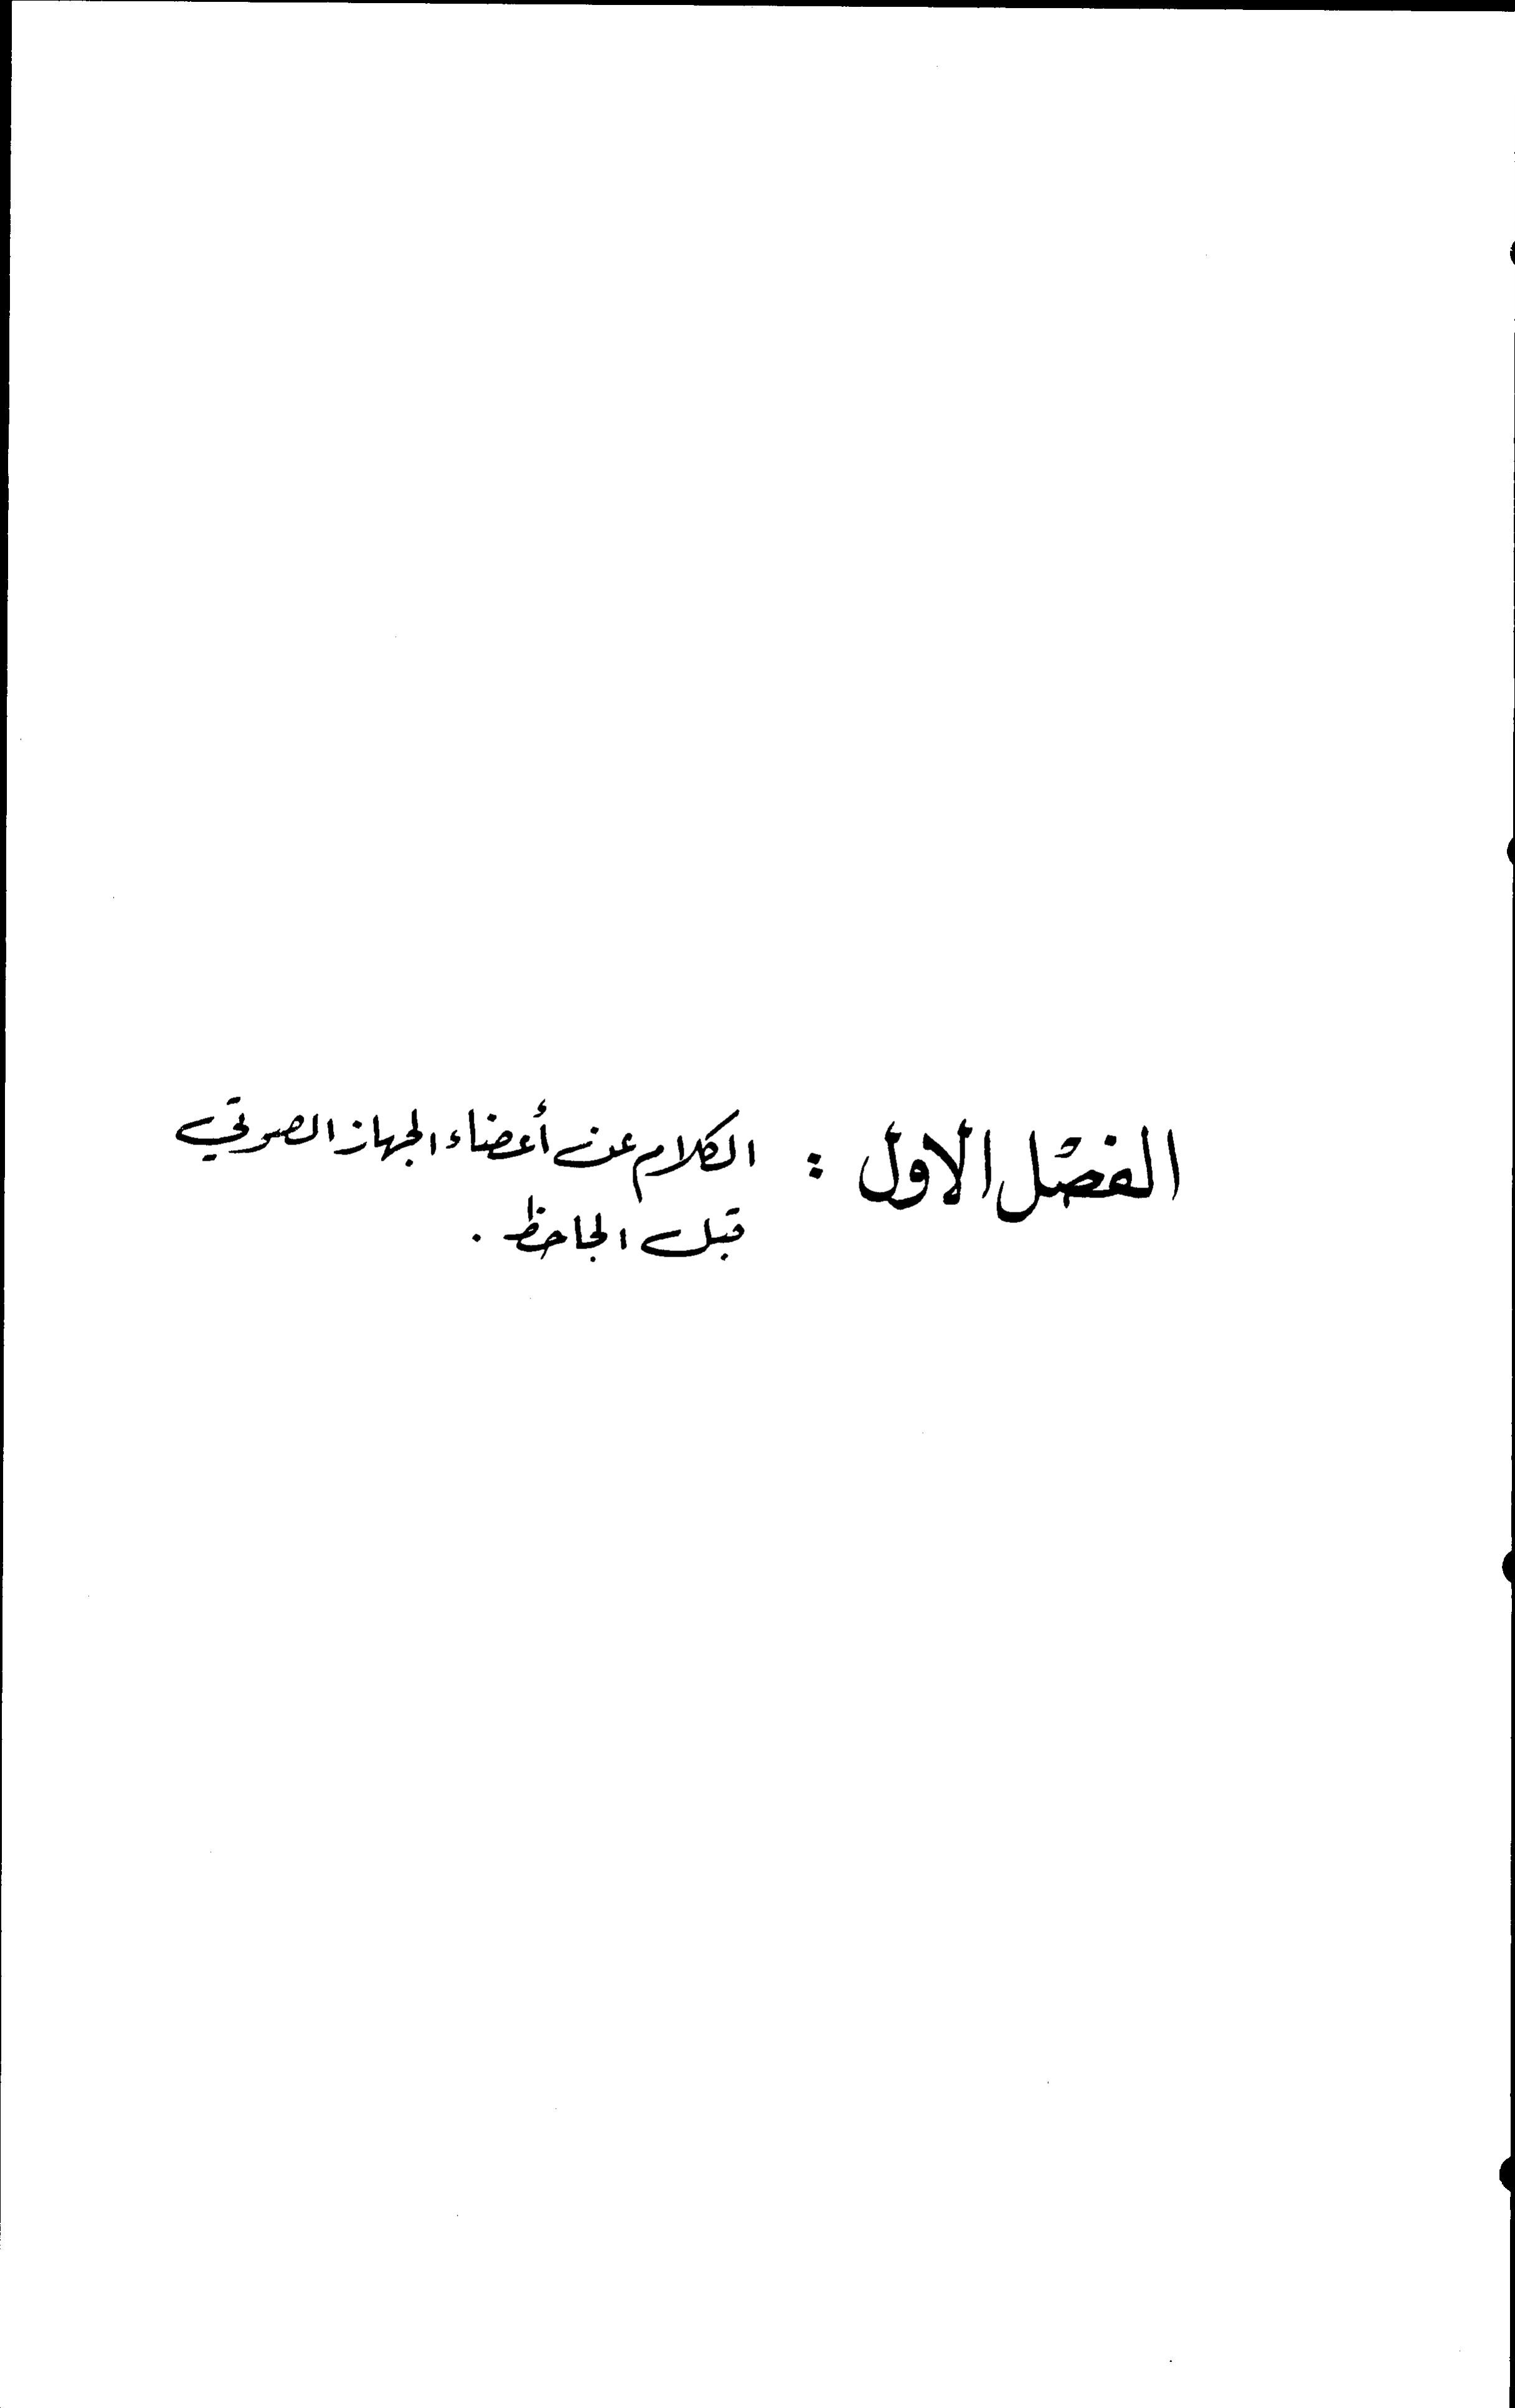 الفصل الأول : الكلام عن أعضاء الجهاز الصوتي
قبل الجاحظ .